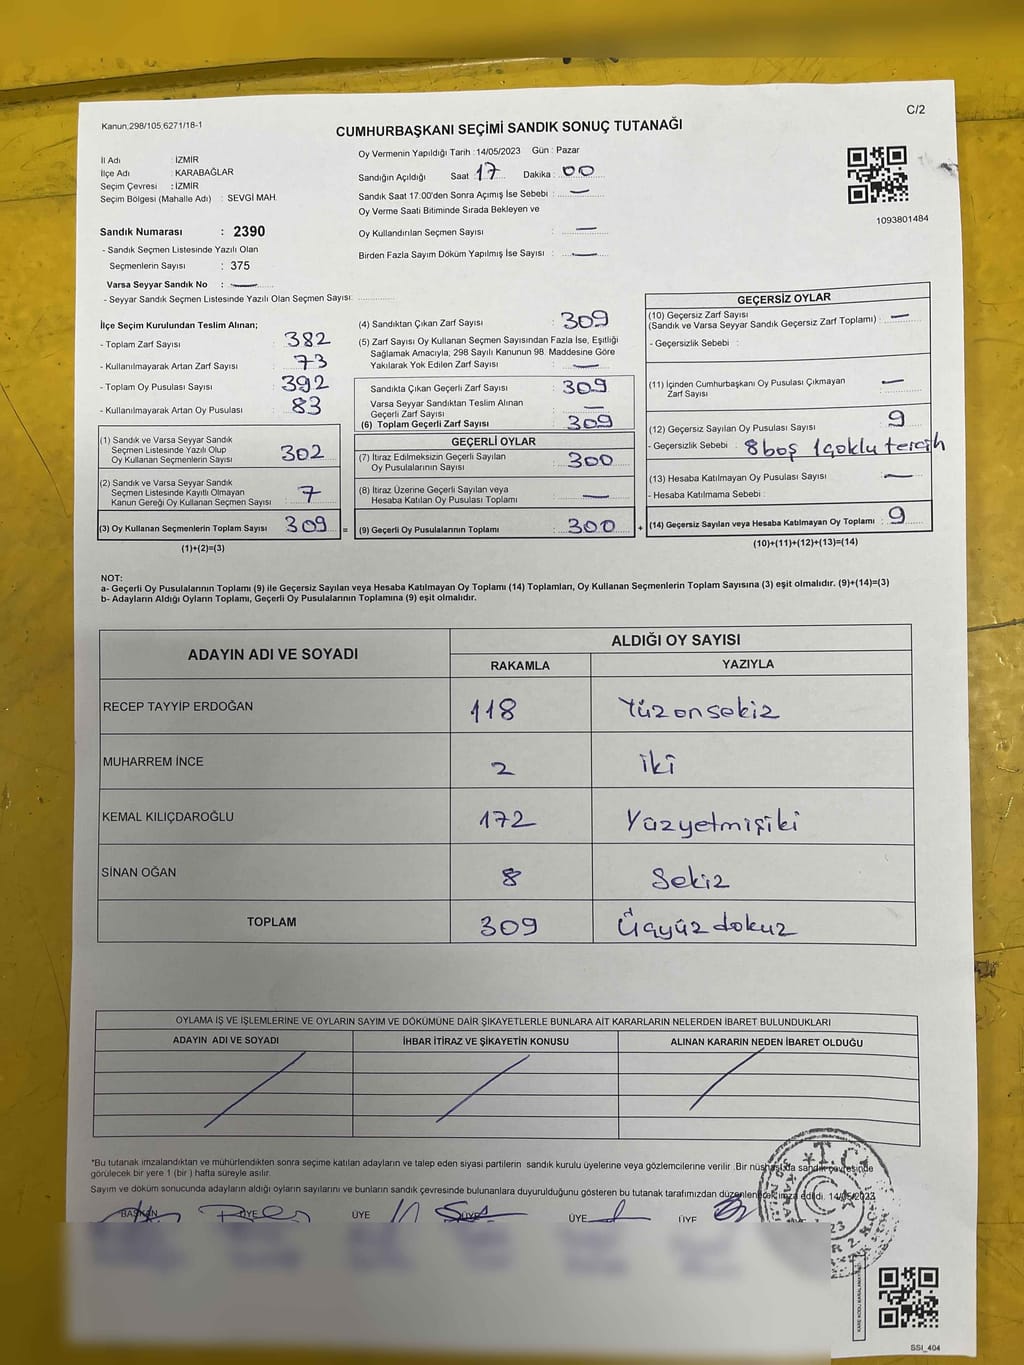 Kanun,298/105,6271/18-1
C/2
CUMHURBAŞKANI SEÇİMİ SANDIK SONUÇ TUTANAĞI
İl Adı : İZMİR
İlçe Adı : KARABAĞLAR
Seçim Çevresi : İZMİR
Seçim Bölgesi (Mahalle Adı) : SEVGİ MAH.
Sandık Numarası : 2390
- Sandık Seçmen Listesinde Yazılı Olan
Seçmenlerin Sayısı : 375
Varsa Seyyar Sandık No : —
- Seyyar Sandık Seçmen Listesinde Yazılı Olan Seçmen Sayısı:
Oy Vermenin Yapıldığı Tarih :14/05/2023 Gün : Pazar
Sandığın Açıldığı Saat : 17 Dakika : 00
Sandık Saat 17:00'den Sonra Açımış İse Sebebi : —
Oy Verme Saati Bitiminde Sırada Bekleyen ve
Oy Kullandırılan Seçmen Sayısı : —
Birden Fazla Sayım Döküm Yapılmış İse Sayısı : —
1093801484
İlçe Seçim Kurulundan Teslim Alınan;
- Toplam Zarf Sayısı : 382
- Kullanılmayarak Artan Zarf Sayısı : 73
- Toplam Oy Pusulası Sayısı : 392
- Kullanılmayarak Artan Oy Pusulası : 83
(1) Sandık ve Varsa Seyyar Sandık
Seçmen Listesinde Yazılı Olup
Oy Kullanan Seçmenlerin Sayısı : 302
(2) Sandık ve Varsa Seyyar Sandık
Seçmen Listesinde Kayıtlı Olmayan
Kanun Gereği Oy Kullanan Seçmen Sayısı : 7
(3) Oy Kullanan Seçmenlerin Toplam Sayısı : 309 =
(1)+(2)=(3)
(4) Sandıktan Çıkan Zarf Sayısı : 309
(5) Zarf Sayısı Oy Kullanan Seçmen Sayısından Fazla İse, Eşitliği
Sağlamak Amacıyla, 298 Sayılı Kanunun 98. Maddesine Göre
Yakılarak Yok Edilen Zarf Sayısı : —
Sandıkta Çıkan Geçerli Zarf Sayısı : 309
Varsa Seyyar Sandıktan Teslim Alınan
Geçerli Zarf Sayısı : —
(6) Toplam Geçerli Zarf Sayısı : 309
GEÇERLİ OYLAR
(7) İtiraz Edilmeksizin Geçerli Sayılan
Oy Pusulalarının Sayısı : 300
(8) İtiraz Üzerine Geçerli Sayılan veya
Hesaba Katılan Oy Pusulası Toplamı : —
(9) Geçerli Oy Pusulalarının Toplamı : 300 +
GEÇERSİZ OYLAR
(10) Geçersiz Zarf Sayısı
(Sandık ve Varsa Seyyar Sandık Geçersiz Zarf Toplamı) : —
- Geçersizlik Sebebi :
(11) İçinden Cumhurbaşkanı Oy Pusulası Çıkmayan
Zarf Sayısı : —
(12) Geçersiz Sayılan Oy Pusulası Sayısı : 9
- Geçersizlik Sebebi : 8 boş 1 çoklu tercih
(13) Hesaba Katılmayan Oy Pusulası Sayısı : —
- Hesaba Katılmama Sebebi :
(14) Geçersiz Sayılan veya Hesaba Katılmayan Oy Toplamı : 9
(10)+(11)+(12)+(13)=(14)
NOT:
a- Geçerli Oy Pusulalarının Toplamı (9) ile Geçersiz Sayılan veya Hesaba Katılmayan Oy Toplamı (14) Toplamları, Oy Kullanan Seçmenlerin Toplam Sayısına (3) eşit olmalıdır. (9)+(14)=(3)
b- Adayların Aldığı Oyların Toplamı, Geçerli Oy Pusulalarının Toplamına (9) eşit olmalıdır.
ADAYIN ADI VE SOYADI
ALDIĞI OY SAYISI
RAKAMLA YAZIYLA
RECEP TAYYİP ERDOĞAN 118 Yüzonsekiz
MUHARREM İNCE 2 iki
KEMAL KILIÇDAROĞLU 172 Yüzyetmişiki
SİNAN OĞAN 8 Sekiz
TOPLAM 309 Üçyüzdokuz
OYLAMA İŞ VE İŞLEMLERİNE VE OYLARIN SAYIM VE DÖKÜMÜNE DAİR ŞİKAYETLERLE BUNLARA AİT KARARLARIN NELERDEN İBARET BULUNDUKLARI
ADAYIN ADI VE SOYADI İHBAR İTİRAZ VE ŞİKAYETİN KONUSU ALINAN KARARIN NEDEN İBARET OLDUĞU
*Bu tutanak imzalandıktan ve mühürlendikten sonra seçime katılan adayların ve talep eden siyasi partilerin sandık kurulu üyelerine veya gözlemcilerine verilir. Bir nüshası da sandık çevresinde
görülecek bir yere 1 (bir) hafta süreyle asılır.
Sayım ve döküm sonucunda adayların aldığı oyların sayılarını ve bunların sandık çevresinde bulunanlara duyurulduğunu gösteren bu tutanak tarafımızdan düzenlenerek imza edildi. 14/05/2023
BAŞKAN ÜYE ÜYE ÜYE ÜYE ÜYE
T.C.
SSI_404